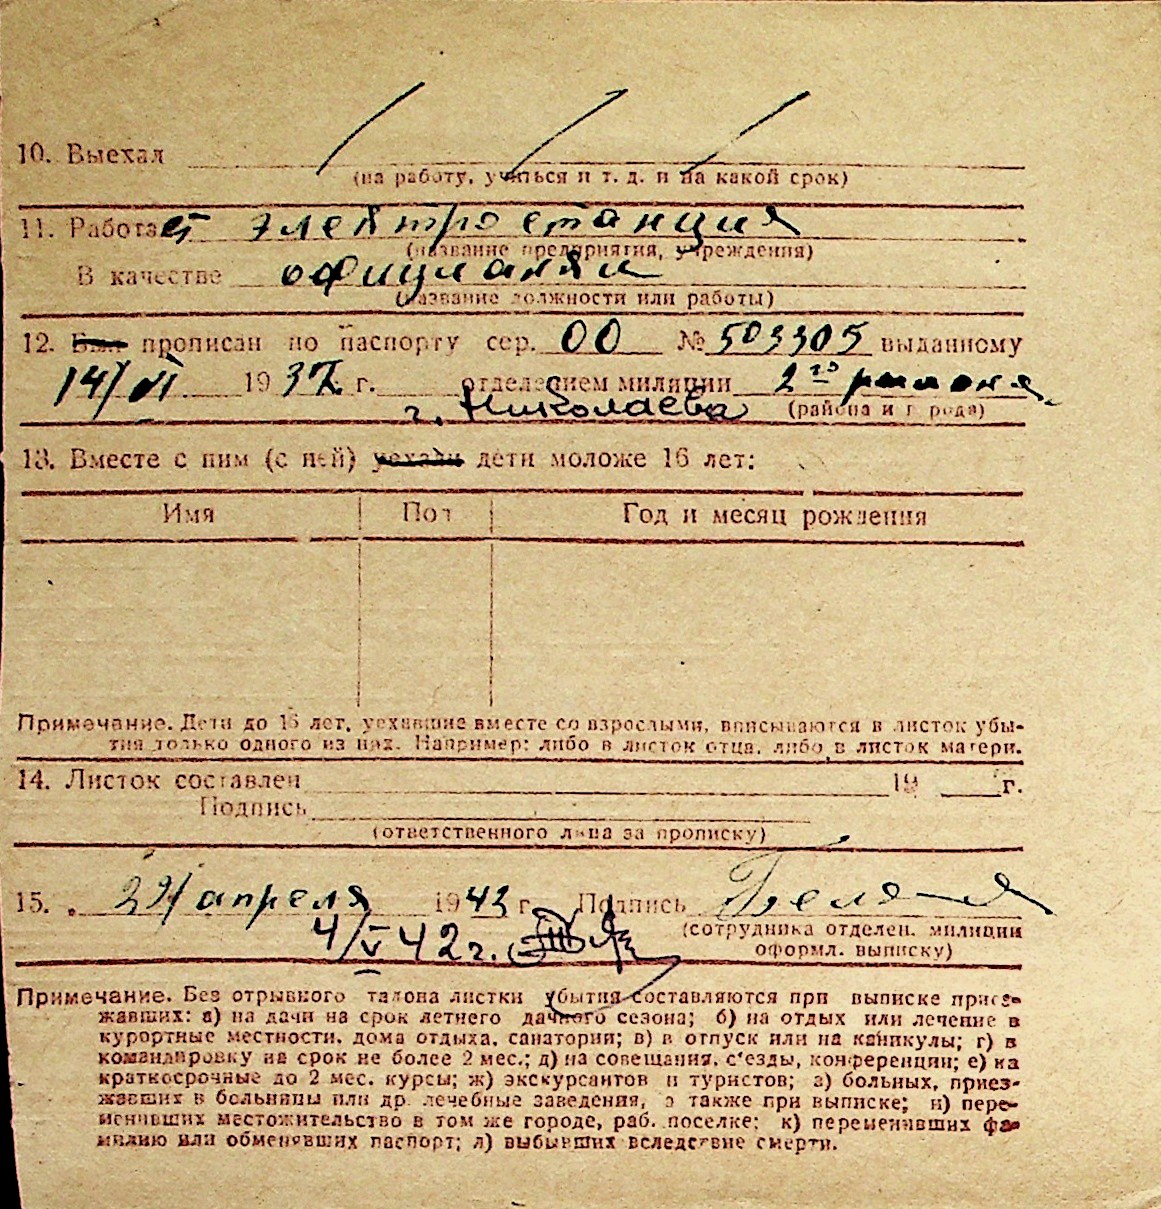 10. Выехал
(на работу, учиться и т. д. и на какой срок)
11. Работает электростанция
(название предприятия, учреждения)
В качестве официантки
(название должности или работы)
12. Был прописан по паспорту сер. 00 № 503305 выданному
14/VI 1937 г. отделением милиции 2го района
г. Николаева (района и города)
13. Вместе с ним (с ней) уехали дети моложе 16 лет:
Имя Пол Год и месяц рождения
Примечание. Дети до 16 лет, уехавшие вместе со взрослыми, вписываются в листок убы-
тия только одного из них. Например: либо в листок отца, либо в листок матери.
14. Листок составлен 19 г.
Подпись
(ответственного лица за прописку)
15. 29/ апреля 1942 г. Подпись
4/V 42 г. (сотрудника отделен. милиции
оформл. выписку)
Примечание. Без отрывного талона листки убытия составляются при выписке приез-
жавших: а) на дачи на срок летнего дачного сезона; б) на отдых или лечение в
курортные местности, дома отдыха, санатории; в) в отпуск или на каникулы; г) в
командировку на срок не более 2 мес.; д) на совещания, с'езды, конференции; е) на
краткосрочные до 2 мес. курсы; ж) экскурсантов и туристов; з) больных, приез-
жавших в больницы или др. лечебные заведения, а также при выписке; и) пере-
менивших местожительство в том же городе, раб. поселке; к) переменивших фа-
милию или обменявших паспорт; л) выбывших вследствие смерти.